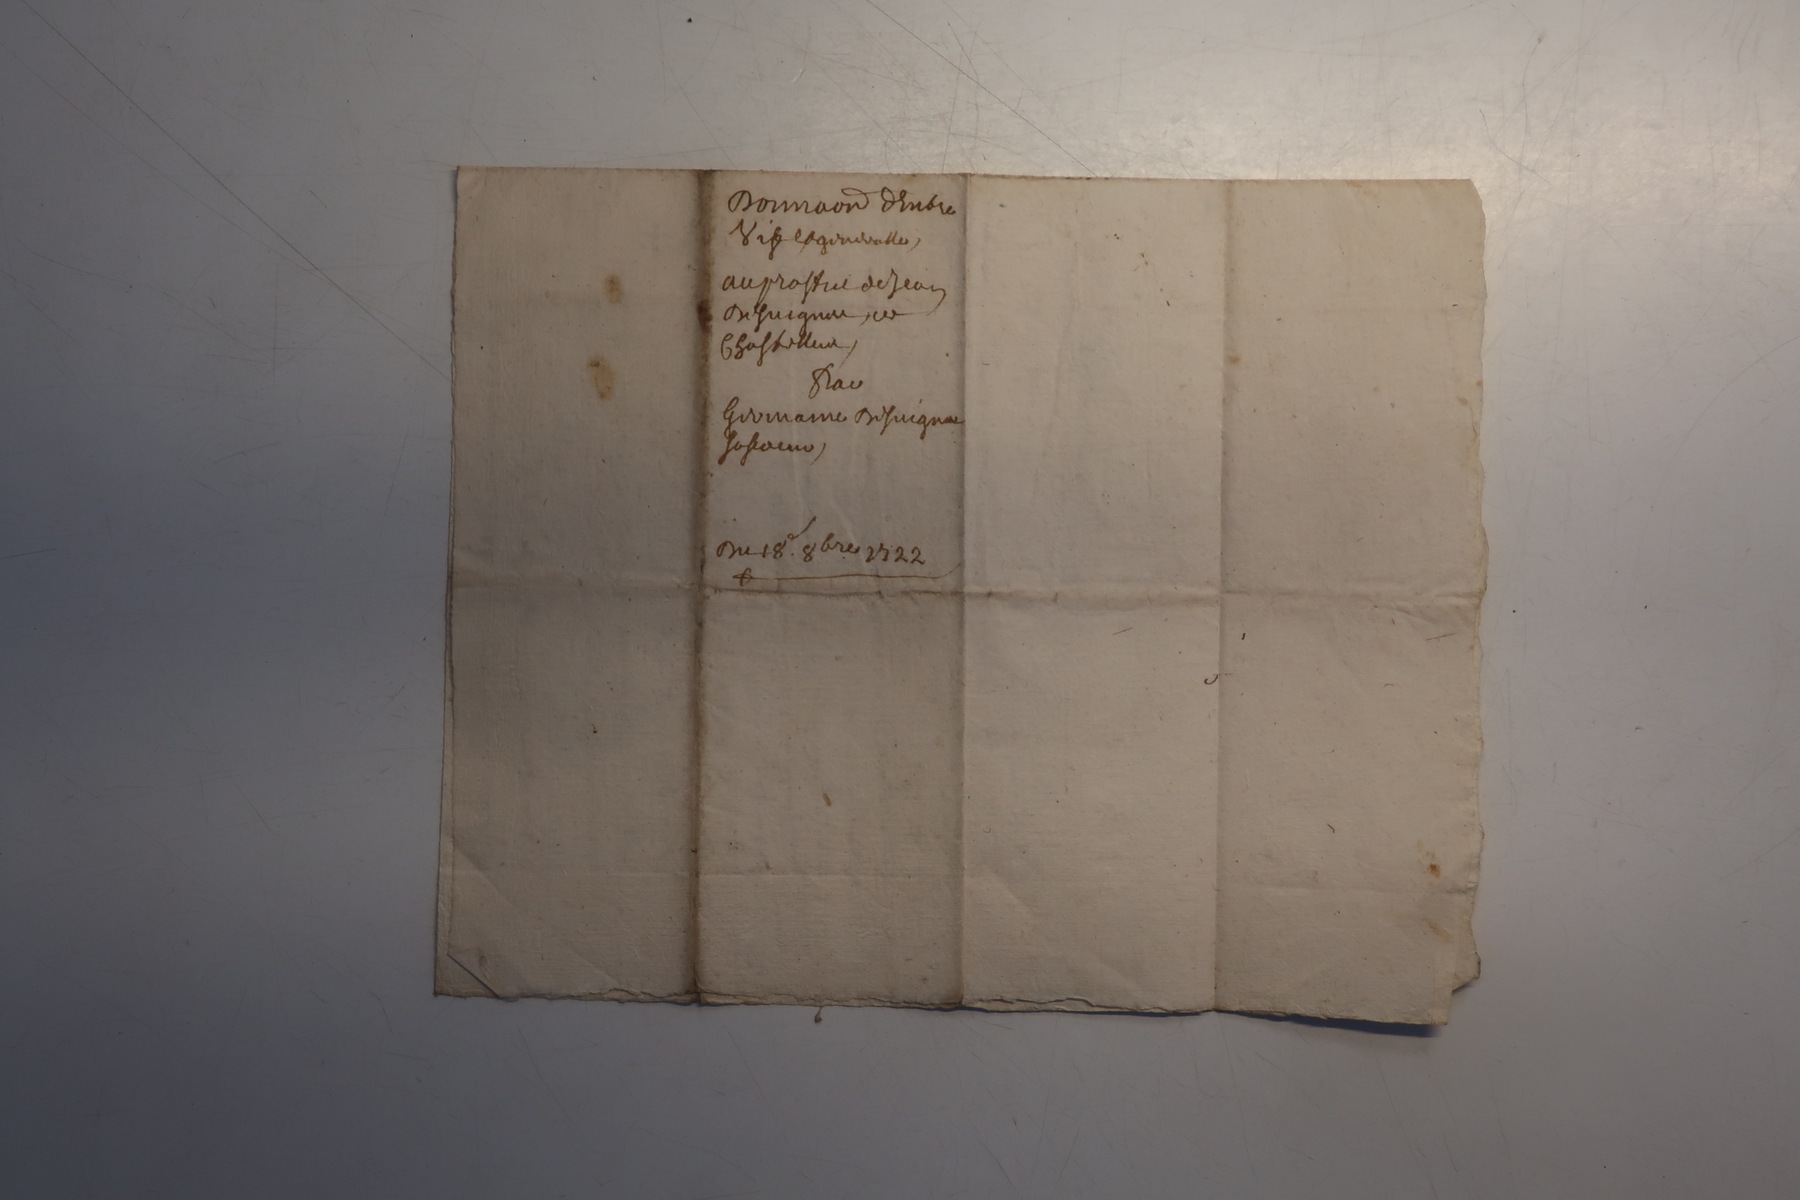 Donnaon d'Entre
Vifz & generalle,
au proffict de Jean
Desuignac, de
Chastelleux,
Par
Germaine Desuignac
sa soeur,
Du 18e. 8bre 1722